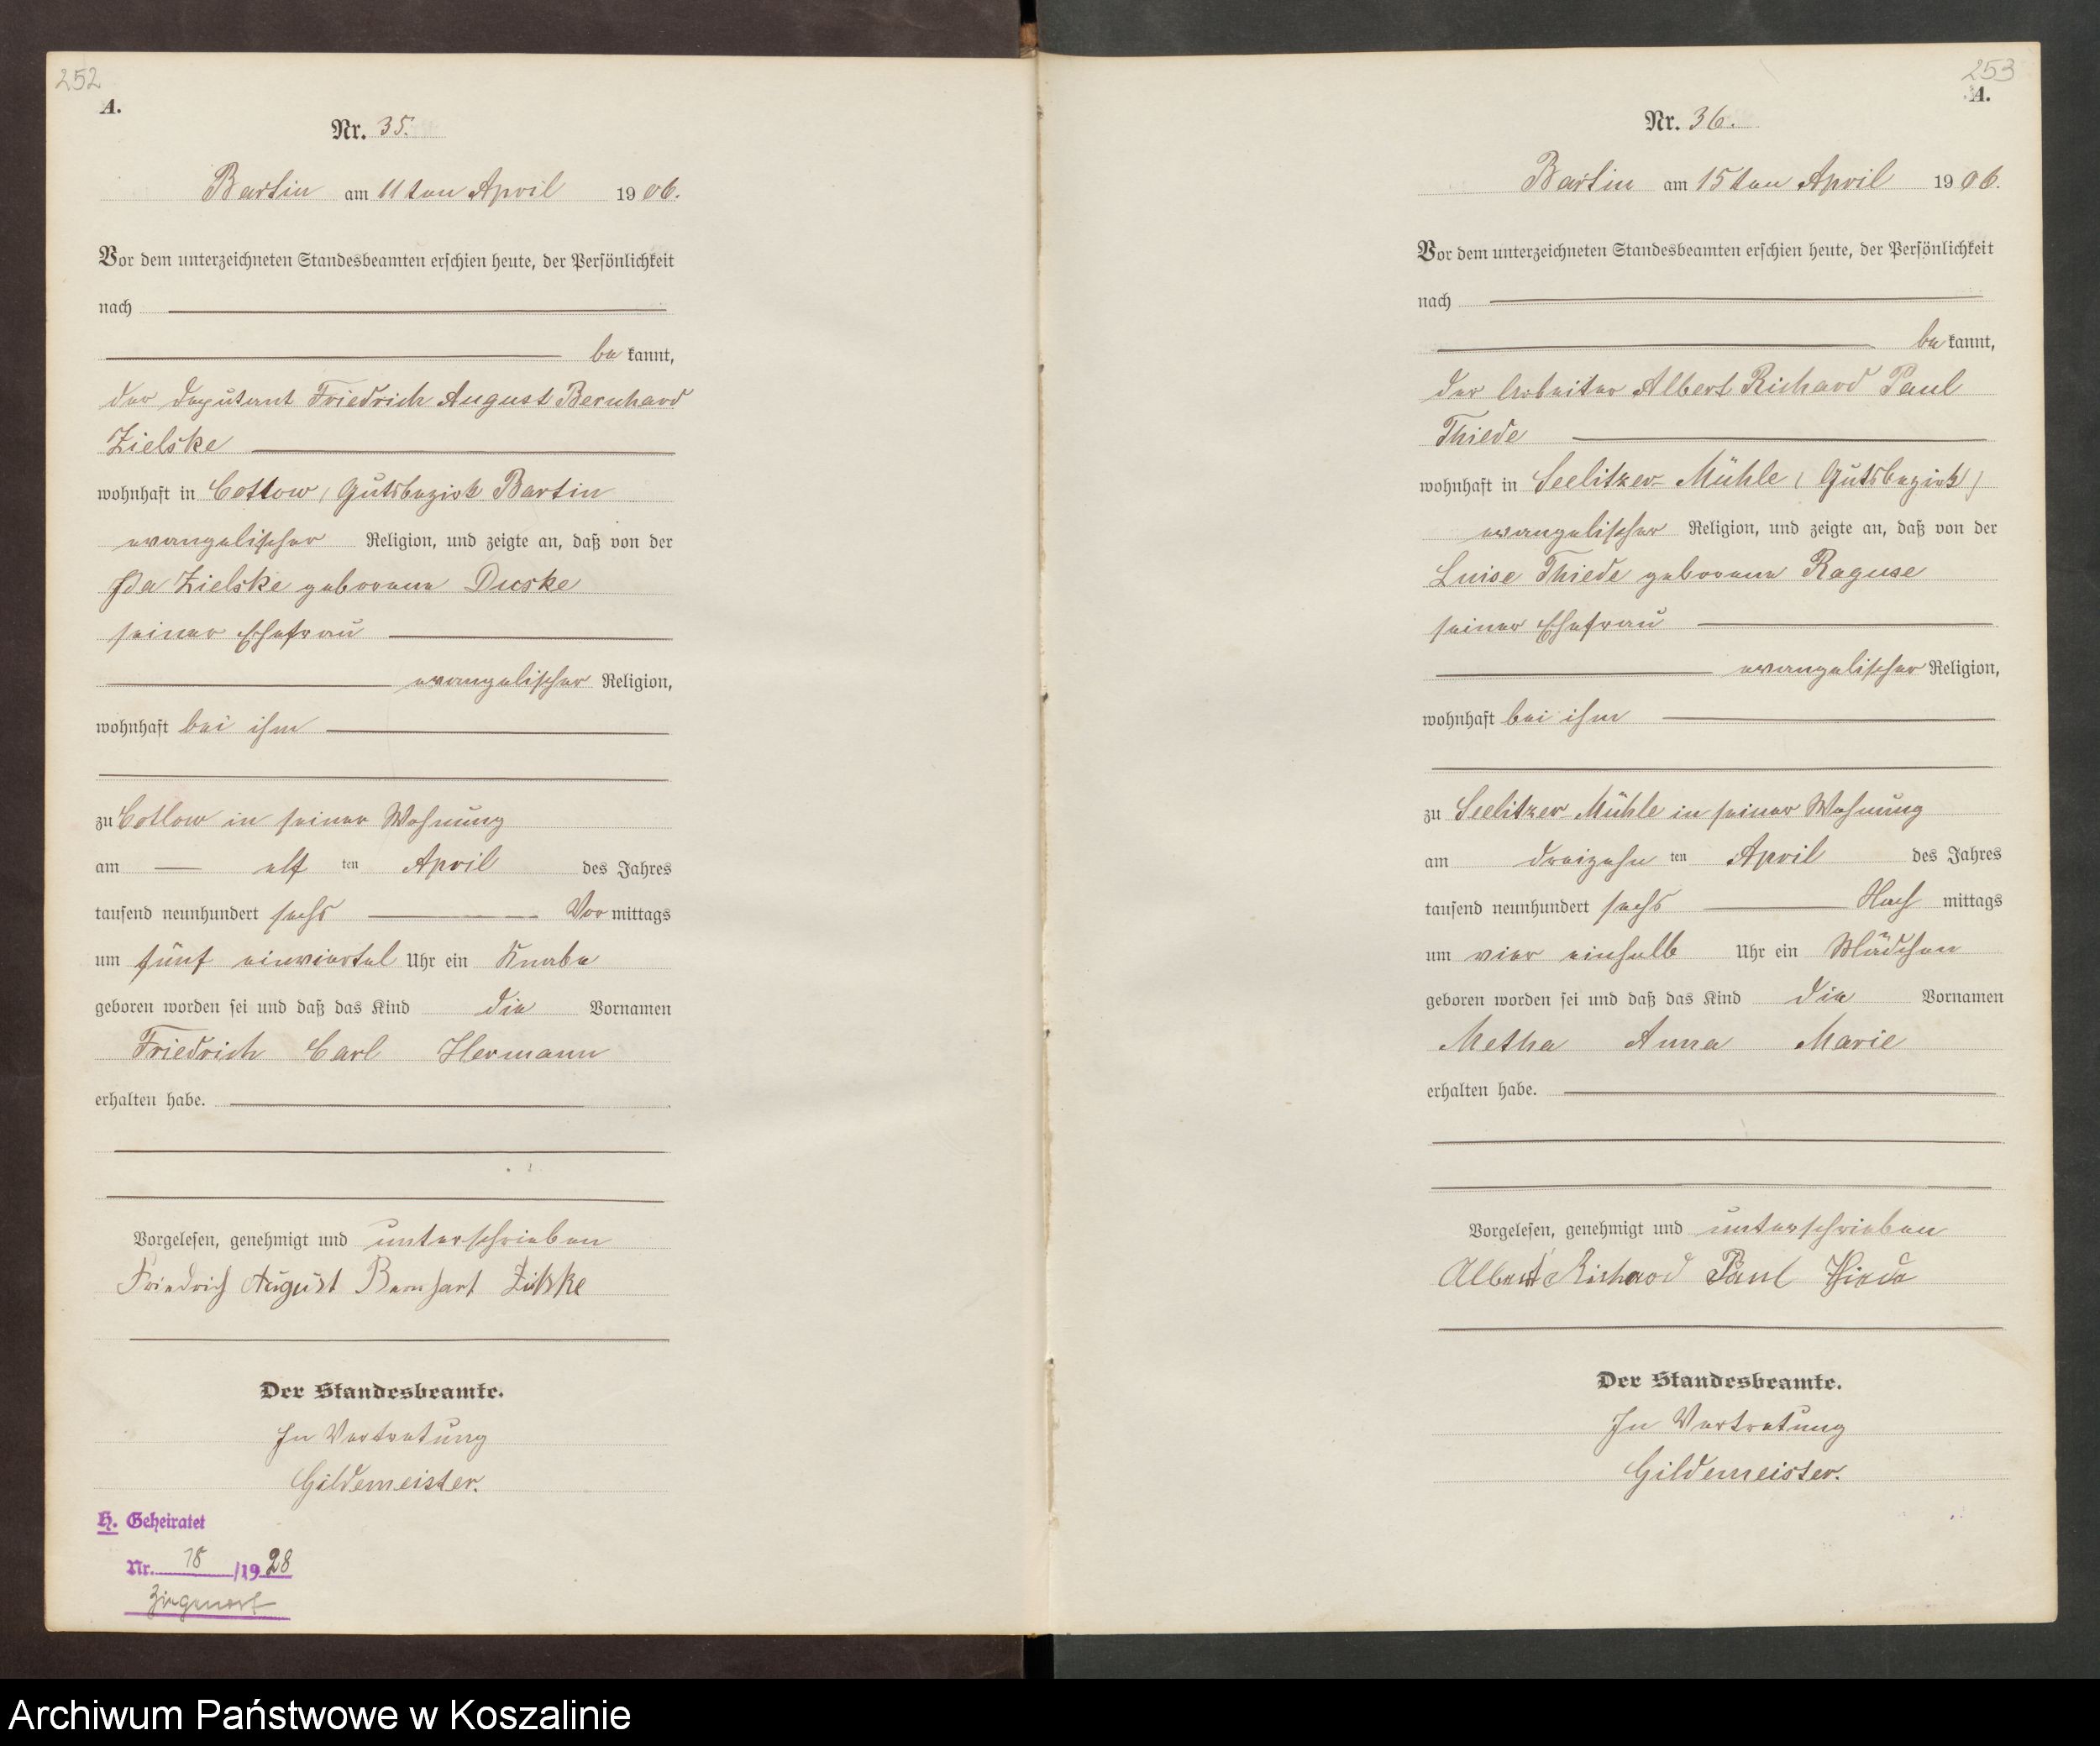 252
A.
Nr. 35.
Bartin am 11ten April 1906.
Vor dem unterzeichneten Standesbeamten erschien heute, der Persönlichkeit
nach
be kannt,
der Deputant Friedrich August Bernhard
Zielske
wohnhaft in Cottow, Gutsbezirk Bartin
evangelischer Religion, und zeigte an, daß von der
Ida Zielske geborene Duske
seiner Ehefrau
evangelischer Religion,
wohnhaft bei ihm
zu Cottow in seiner Wohnung
am elf ten April des Jahres
tausend neunhundert sechs Vor mittags
um fünf einviertel Uhr ein Knabe
geboren worden sei und daß das Kind die Vornamen
Friedrich Carl Hermann
erhalten habe.
Vorgelesen, genehmigt und unterschrieben
Friedrich August Bernhart Zilske
Der Standesbeamte.
In Vertretung
Gildemeister.
H. Geheiratet
Nr. 18 /1928
253
A.
Nr. 36.
Bartin am 15ten April 1906.
Vor dem unterzeichneten Standesbeamten erschien heute, der Persönlichkeit
nach
be kannt,
der Arbeiter Albert Richard Paul
Thiede
wohnhaft in Seelitzer-Mühle (Gutsbezirk)
evangelischer Religion, und zeigte an, daß von der
Luise Thiede geborene Raguse
seiner Ehefrau
evangelischer Religion,
wohnhaft bei ihm
zu Seelitzer-Mühle in seiner Wohnung
am dreizehn ten April des Jahres
tausend neunhundert sechs Nach mittags
um vier einhalb Uhr ein Mädchen
geboren worden sei und daß das Kind die Vornamen
Metha Anna Marie
erhalten habe.
Vorgelesen, genehmigt und unterschrieben
Albert Richard Paul Thiede
Der Standesbeamte.
In Vertretung
Gildemeister.
Archiwum Państwowe w Koszalinie